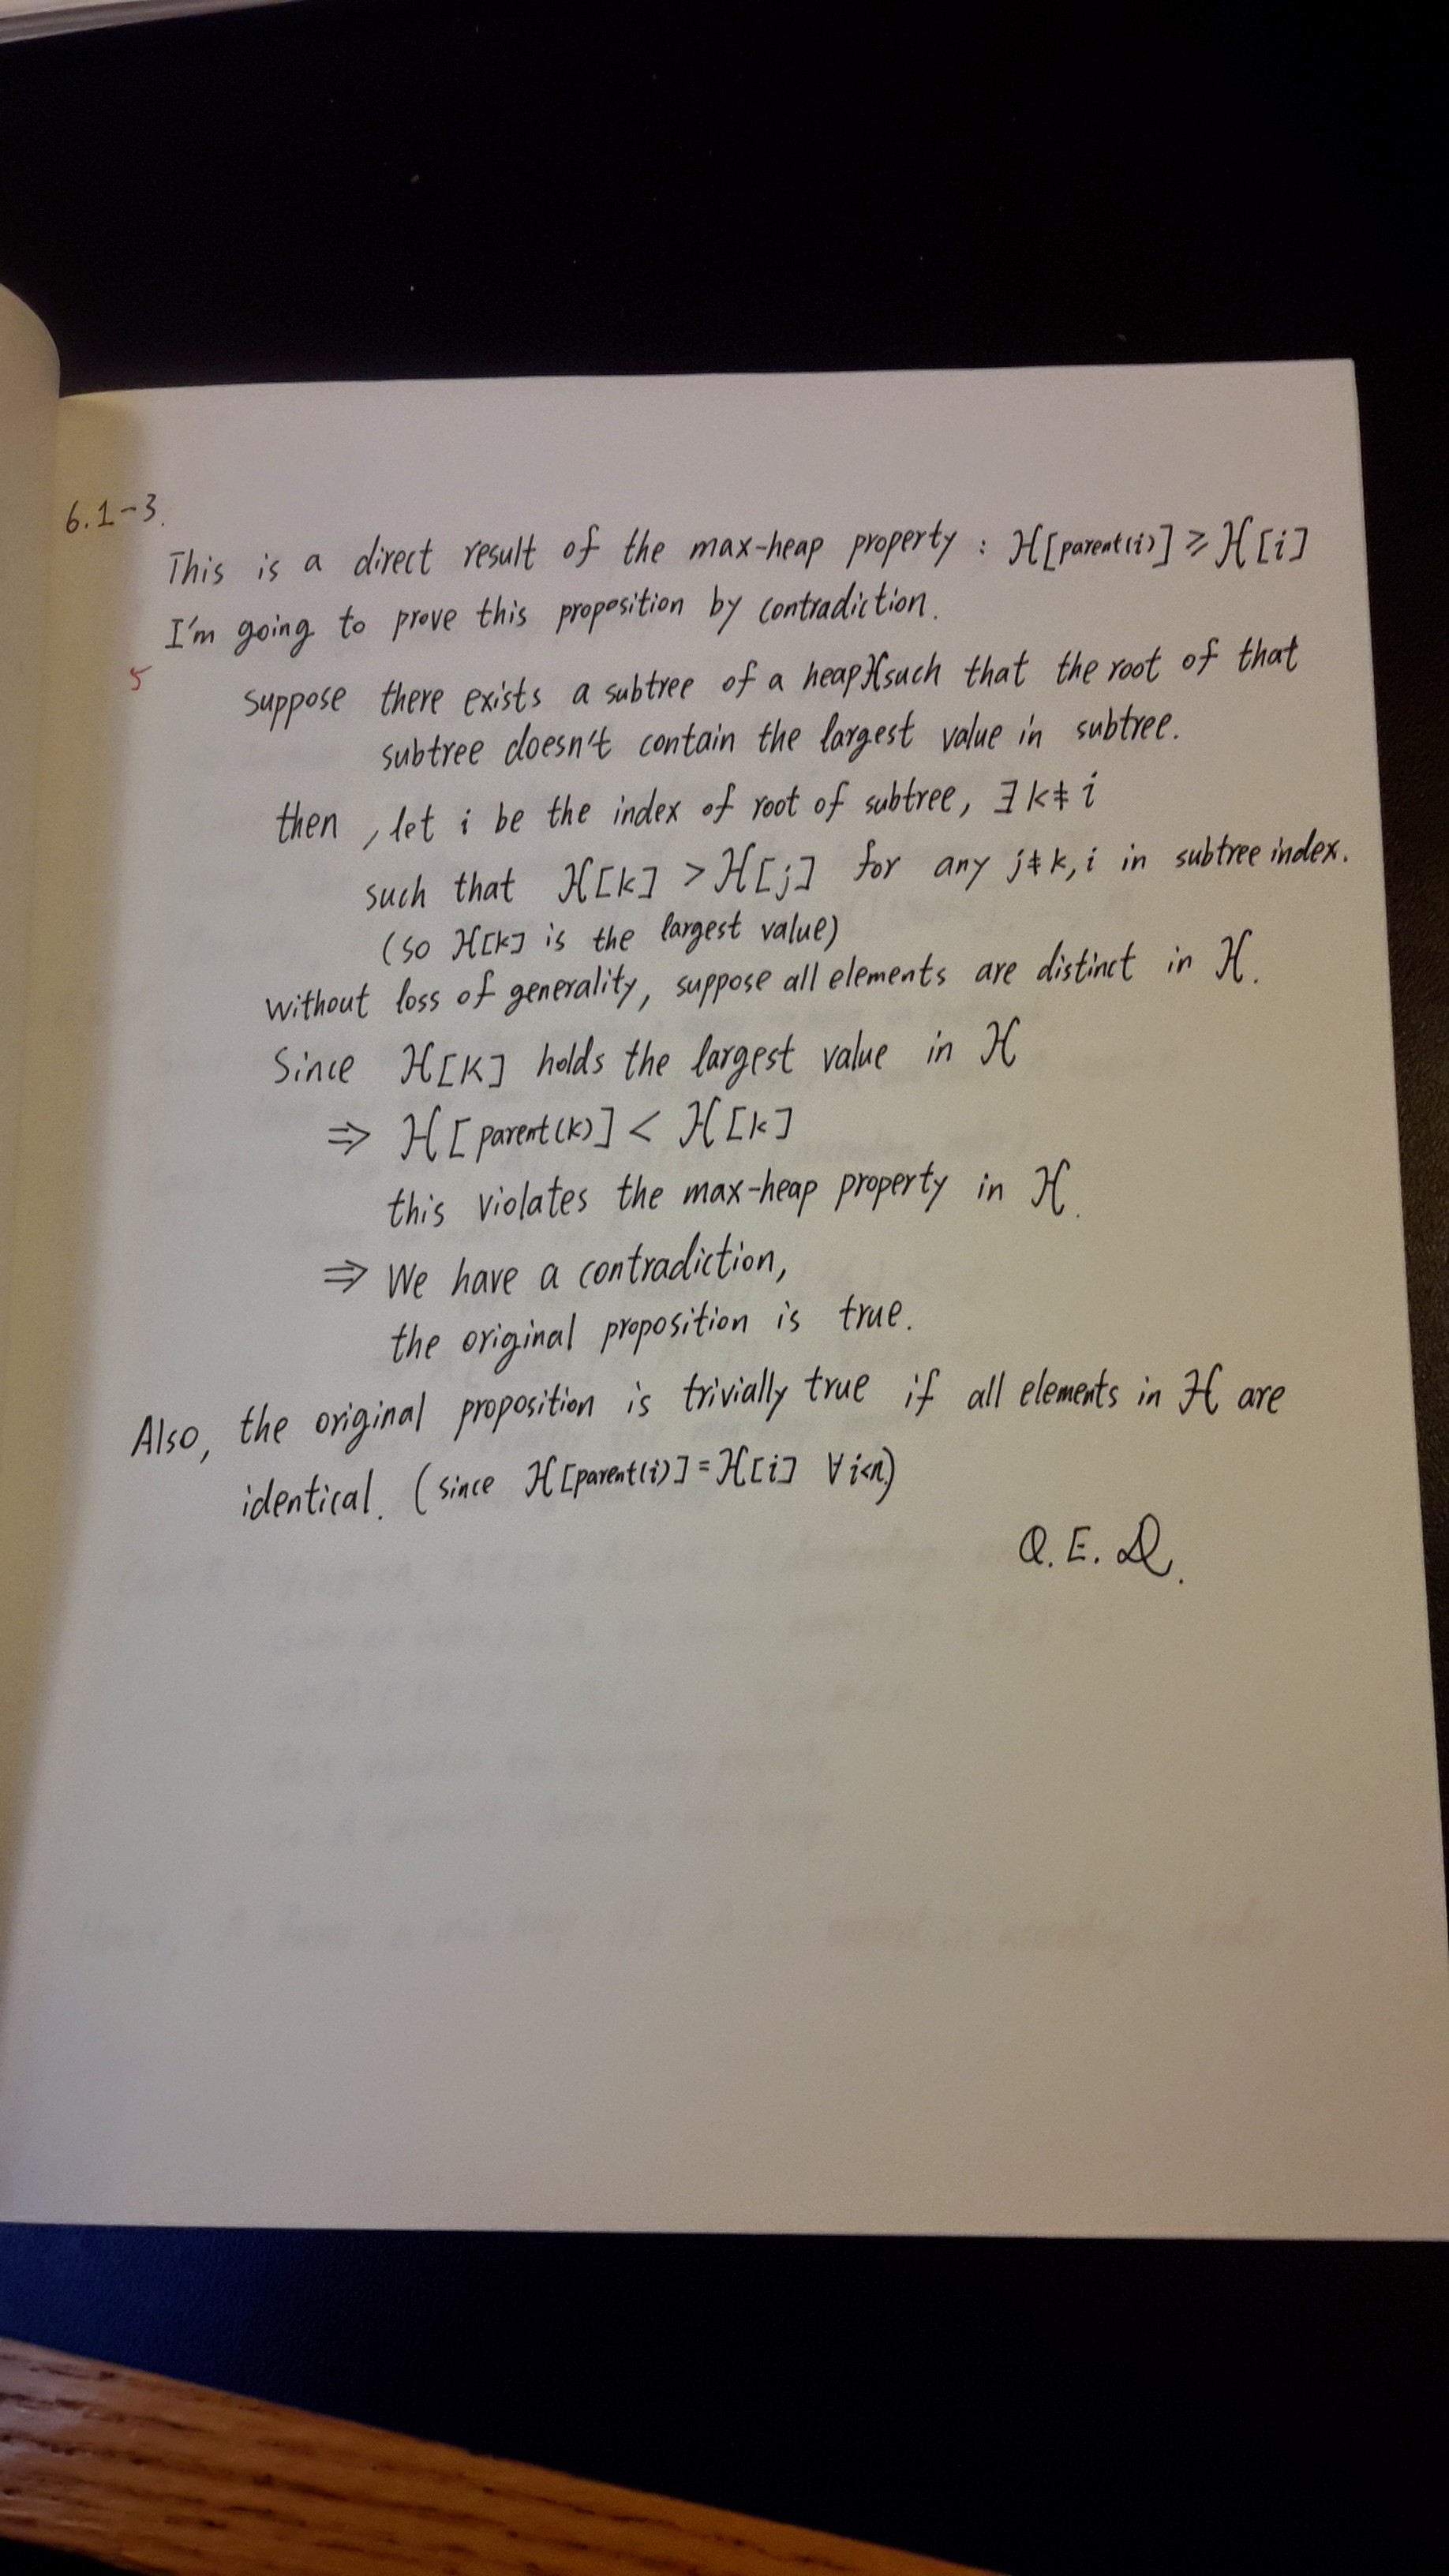 6.1-3.
This is a direct result of the max-heap property : H[parent(i)] ≥ H[i]
I'm going to prove this proposition by contradiction.
5
suppose there exists a subtree of a heap H such that the root of that
subtree doesn't contain the largest value in subtree.
then , let i be the index of root of subtree, ∃ k ≠ i
such that H[k] > H[j] for any j ≠ k, i in subtree index.
(so H[k] is the largest value)
without loss of generality, suppose all elements are distinct in H.
Since H[K] holds the largest value in H
⇒ H[parent(k)] < H[k]
this violates the max-heap property in H.
⇒ We have a contradiction,
the original proposition is true.
Also, the original proposition is trivially true if all elements in H are
identical. (since H[parent(i)] = H[i] ∀ i<n)
Q.E.D.